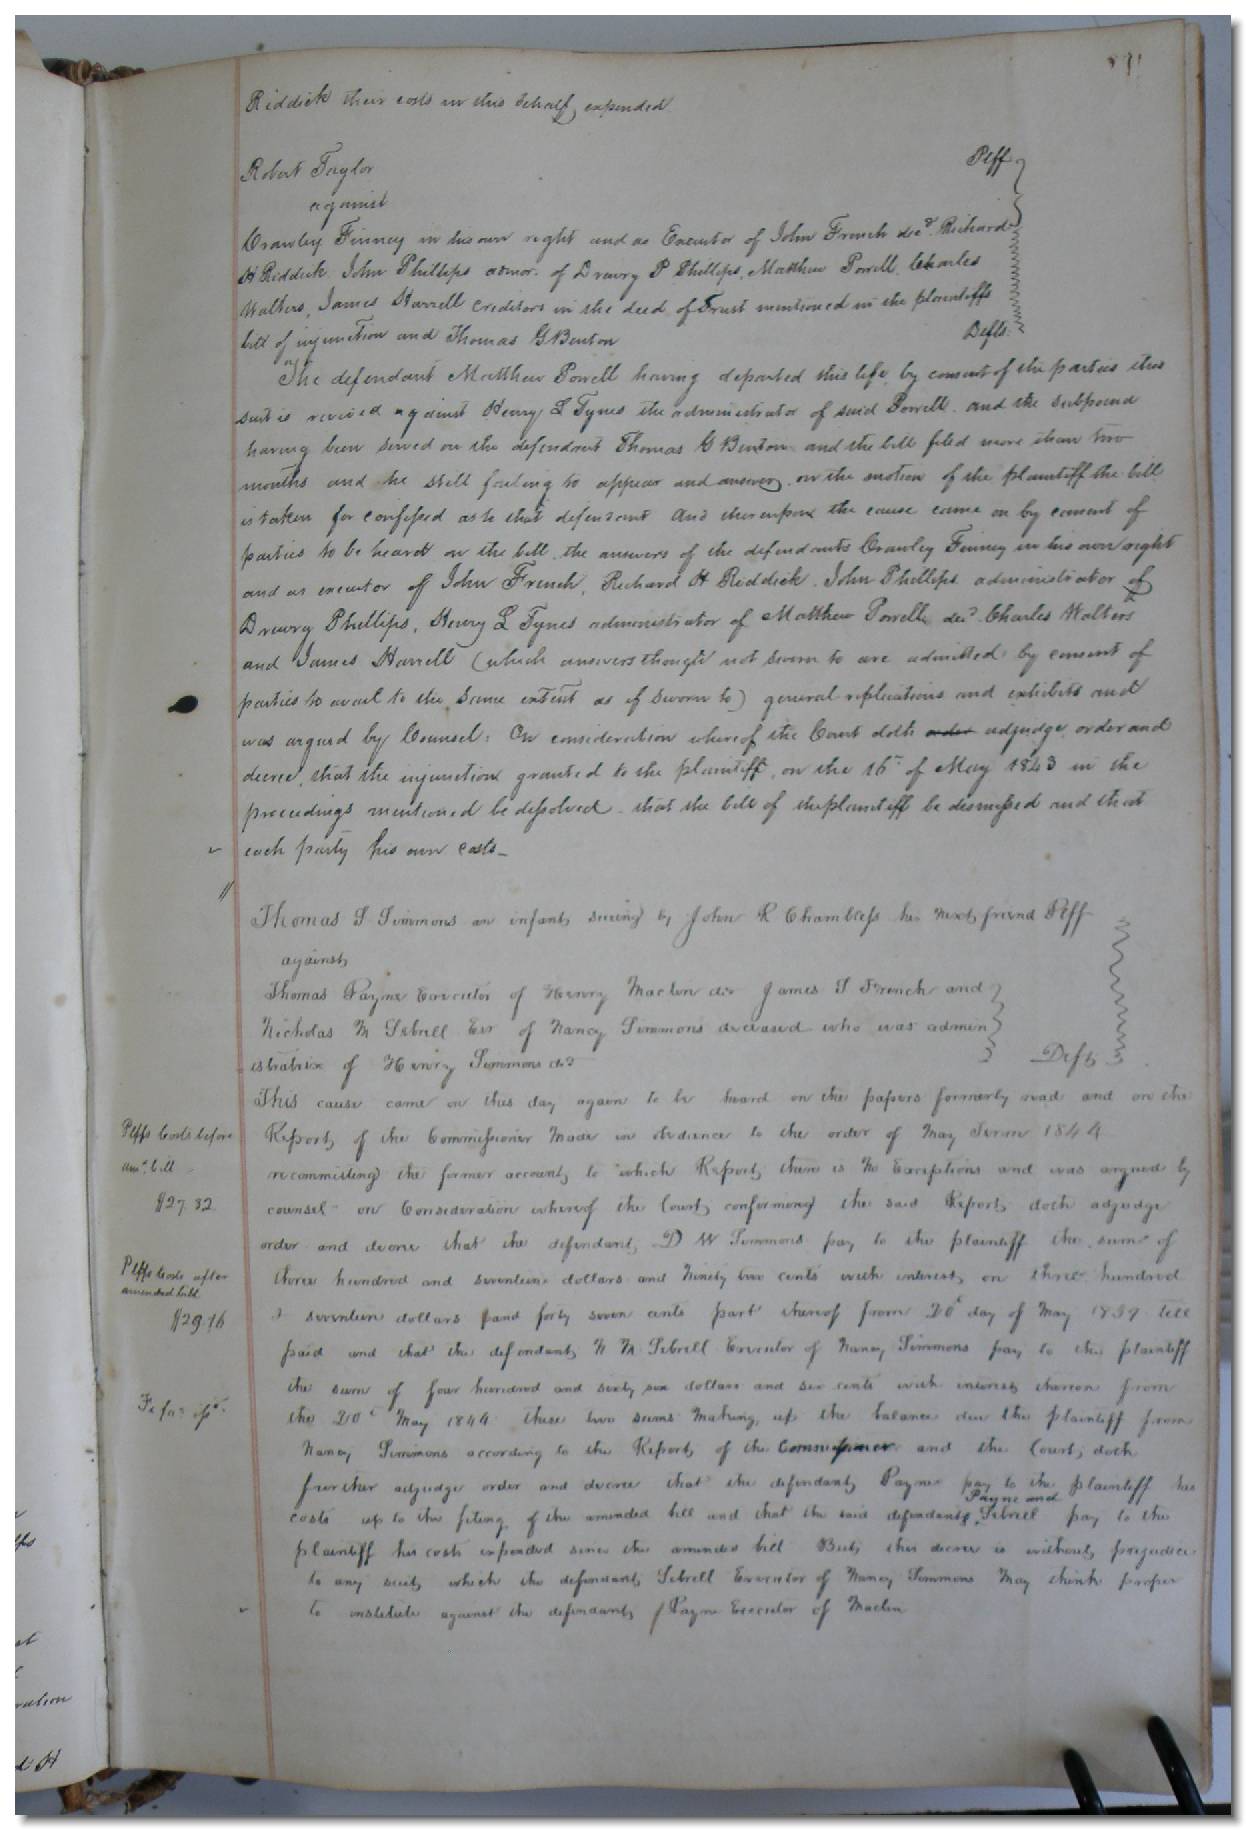 Riddick their costs in this behalf expended.
Robert Taylor Plff
against
Crawley Finney in his own right and as Executor of John French decd. Richard
H Riddick, John Phillips admor. of Drewry P Phillips, Matthew Powell, Charles
Walters, James Harrell creditors in the deed of Trust mentioned in the plaintiffs
bill of injunction and Thomas G Benton Defts.
The defendant Matthew Powell having departed this life, by consent of the parties this
suit is revived against Henry L Tynes the administrator of said Powell. and the subpoena
having been served on the defendant Thomas G Benton and the bill filed more than two
months and he still failing to appear and answer, on the motion of the plaintiff the bill
is taken for confessed as to that defendant And thereupon the cause came on by consent of
parties to be heard on the bill, the answers of the defendants Crawley Finney in his own right
and as executor of John French, Richard H Riddick, John Phillips administrator of
Drewry Phillips, Henry L Tynes administrator of Matthew Powell decd. Charles Walters
and James Harrell (which answers though not sworn to are admitted by consent of
parties to avail to the same extent as if sworn to) general replications and exhibits and
was argued by Counsel: On consideration whereof the Court doth order adjudge, order and
decree, that the injunction granted to the plaintiff, on the 16th of May 1843 in the
proceedings mentioned be dissolved - that the bill of the plaintiff be dismissed and that
each party his own costs -
Thomas S Simmons an infant, sueing by John R Chambless his next friend Plff
against
Thomas Payne Executor of Henry Maclin decd James S French and
Nicholas M Sebrell Exr of Nancy Simmons deceased who was admin
istratrix of Henry Simmons decd Defts
This cause came on this day again to be heard on the papers formerly read and on the
Plffs Costs before
Report of the Commissioner Made in obedience to the order of May Term 1844
amd. bill
recommitting the former account to which Report there is No Exceptions and was argued by
$27.32
counsel - on Consideration whereof the Court confirming the said Report doth adjudge
order and decree that the defendant D W Simmons pay to the plaintiff the sum of
Plffs Costs after
three hundred and seventeen dollars and Ninety two cents with interest on three hundred
amended bill
$29.16
& seventeen dollars and forty seven cents part thereof from 20th day of May 1839 till
paid and that the defendant N M Sebrell Executor of Nancy Simmons pay to the plaintiff
the sum of four hundred and sixty six dollars and six cents with interest thereon from
Fi fa
the 20th May 1844 these two sums Making up the balance due the plaintiff from
Nancy Simmons according to the Report of the Commissioner and the Court doth
further adjudge order and decree that the defendant Payne pay to the plaintiff his
costs up to the fileing of the amended bill and that the said defendants Payne and Sebrell pay to the
plaintiff his costs expended since the amended bill But this decree is without prejudice
to any suit which the defendant Sebrell Executor of Nancy Simmons May think proper
to institute against the defendant Payne Executor of Maclin